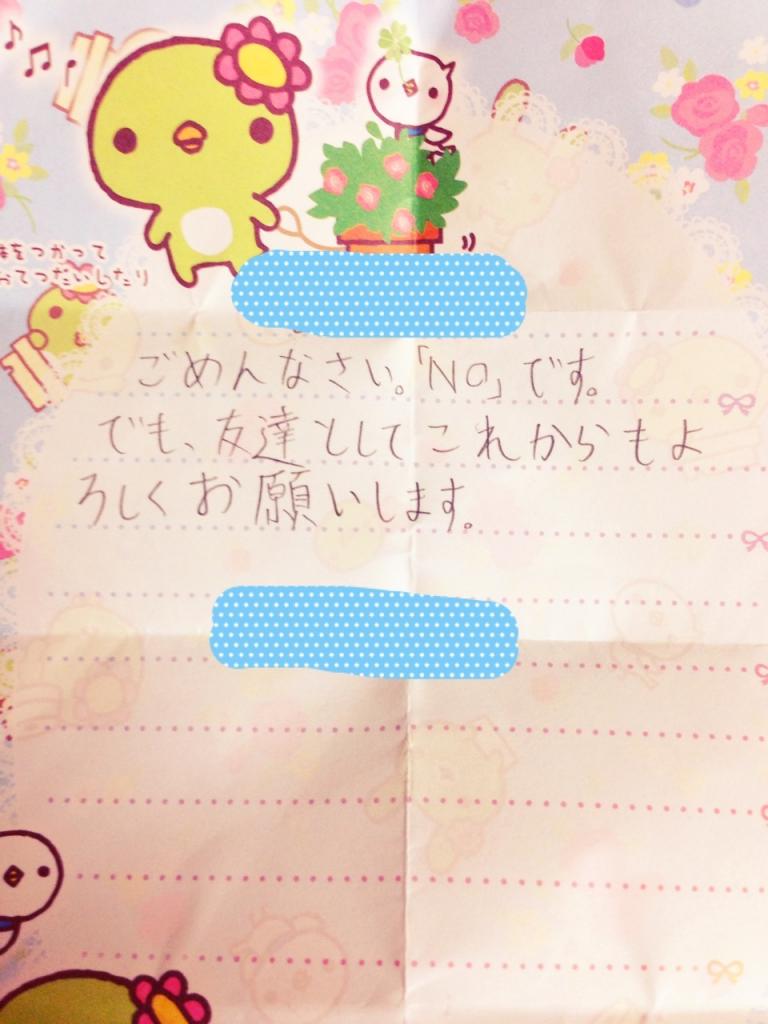 をつかって
おてつだいしたり
ごめんなさい。「NO」です。
でも、友達としてこれからもよ
ろしくお願いします。